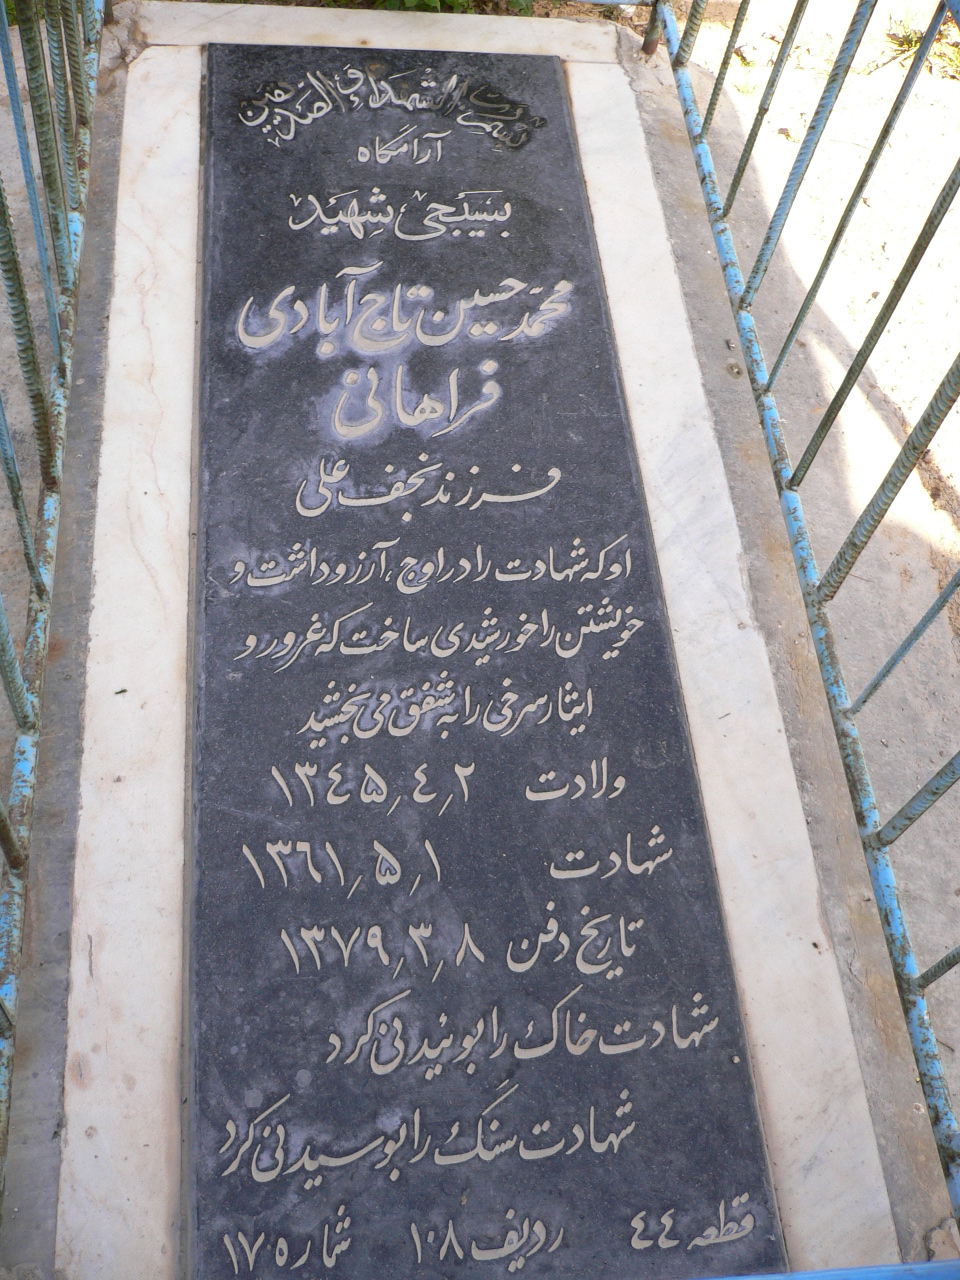 بسم رب الشهداء و الصدیقین
آرامگاه
بسیجی شهید
محمّدحسین تاج آبادی
فراهانی
فرزند نجف علی
او که شهادت را در اوج، آرزو داشت و
خویشتن را خورشیدی ساخت که غرور و
ایثار سرخی را به شفق می بخشید
ولادت ۱۳٤۵٫٤٫۲
شهادت ۱۳٦۱٫۵٫۱
تاریخ دفن ۱۳۷۹٫۳٫۸
شهادت خاک را بوئیدنی کرد
شهادت سنگ را بوسیدنی کرد
قطعه ٤٤ ردیف ۱۰۸ شماره ۱۷